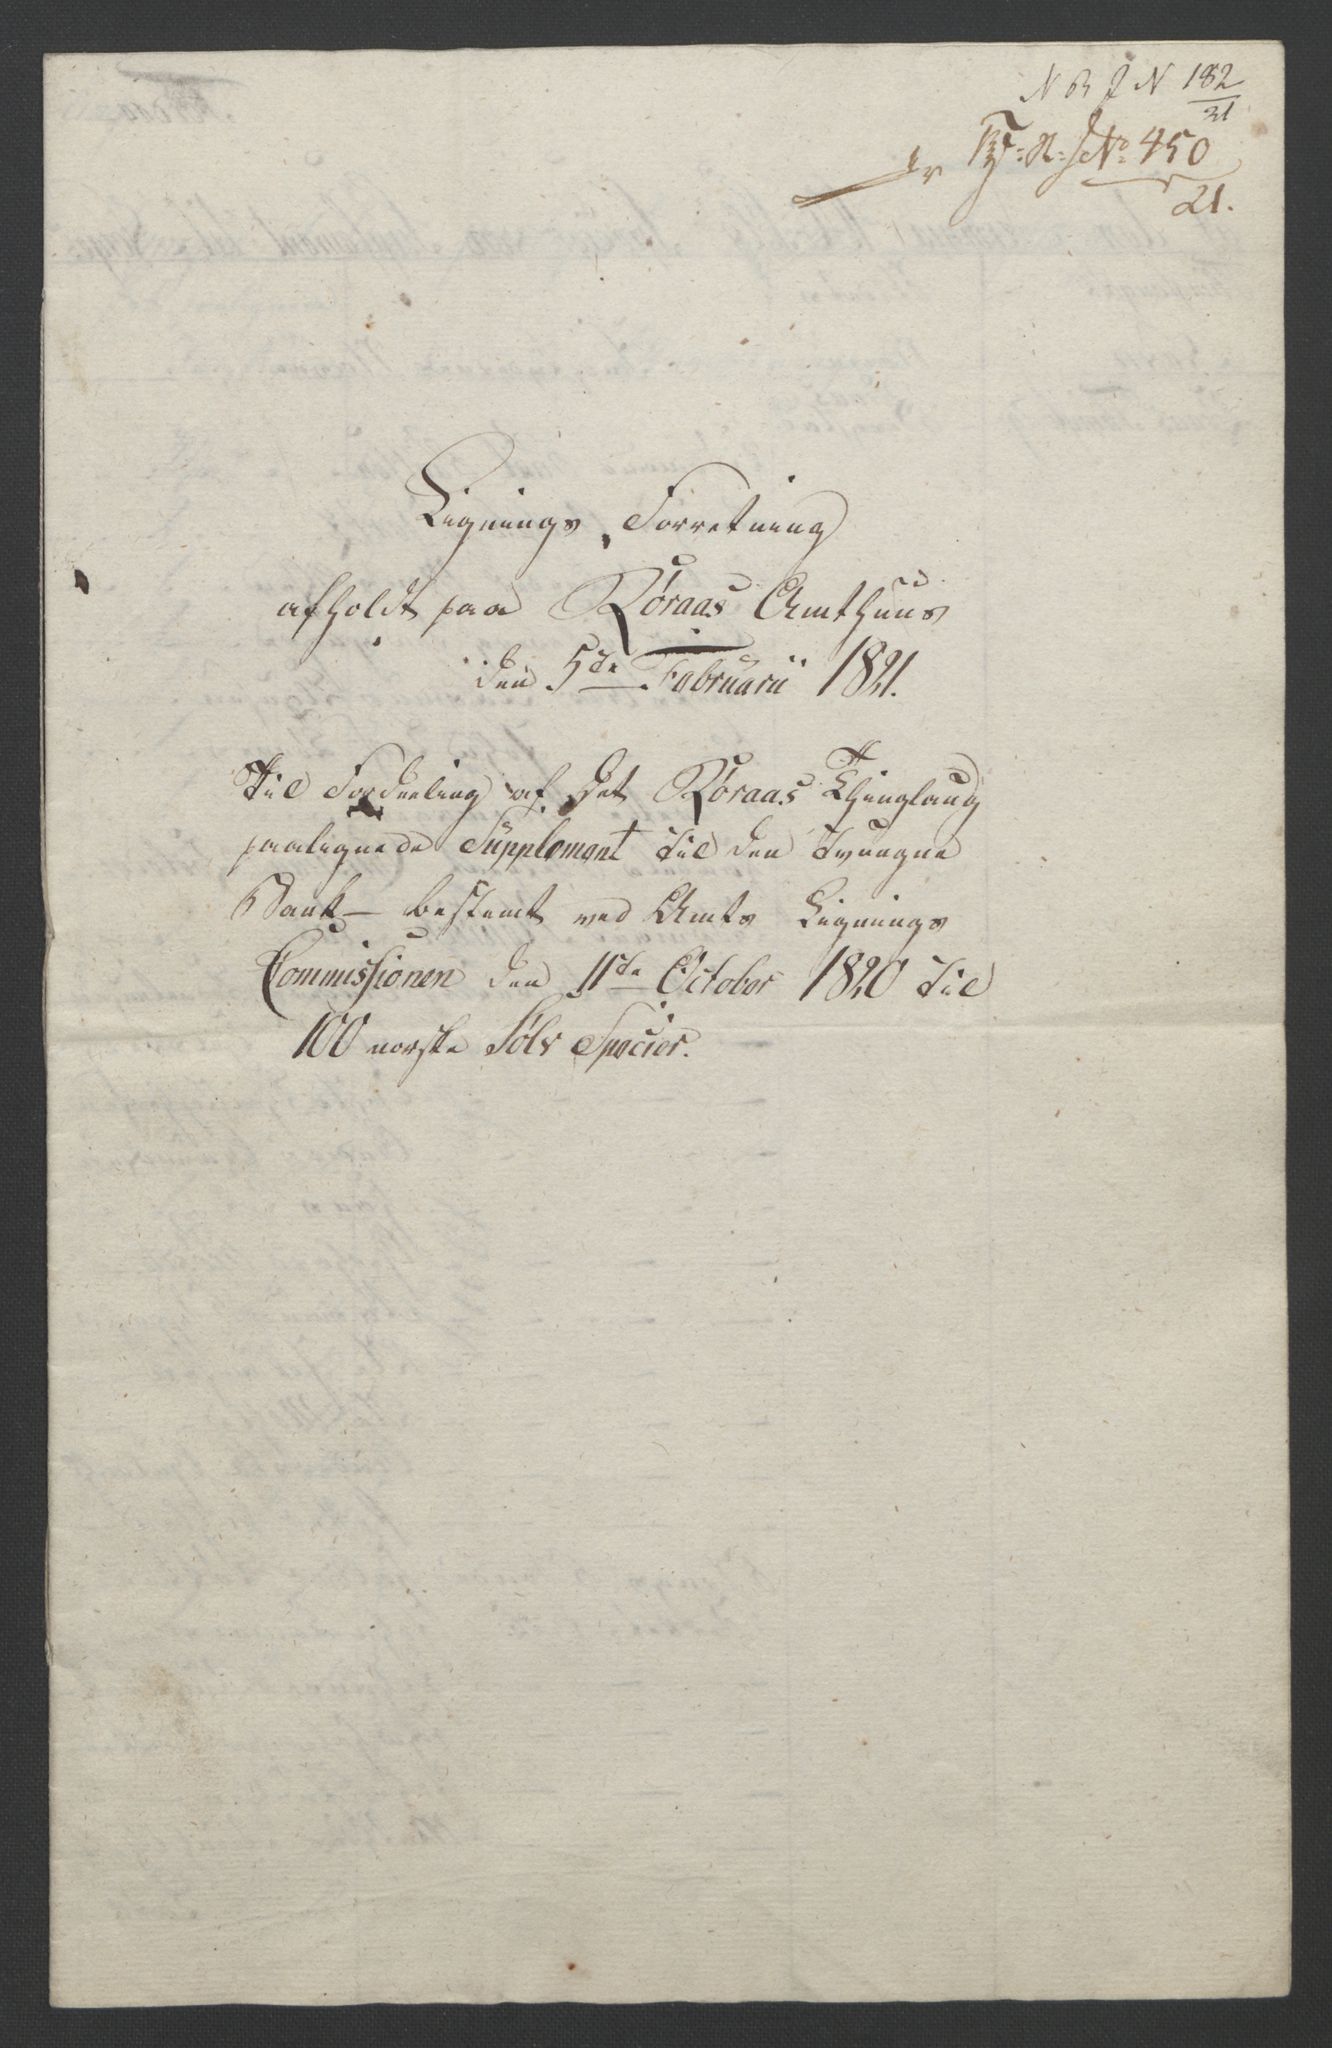 N B J N 182/21
R: J No 450
21.
Lignings Forretning
afholdt paa Røraas Amthuus
den 5te Februarii 1821.
til Fordeeling af det Røraas Thinglaug
paalignede Supplement til den tvungne
Bank — bestemt ved Amts Lignings
Commissionen den 11te October 1820 til
100 norske Sølv Specier.